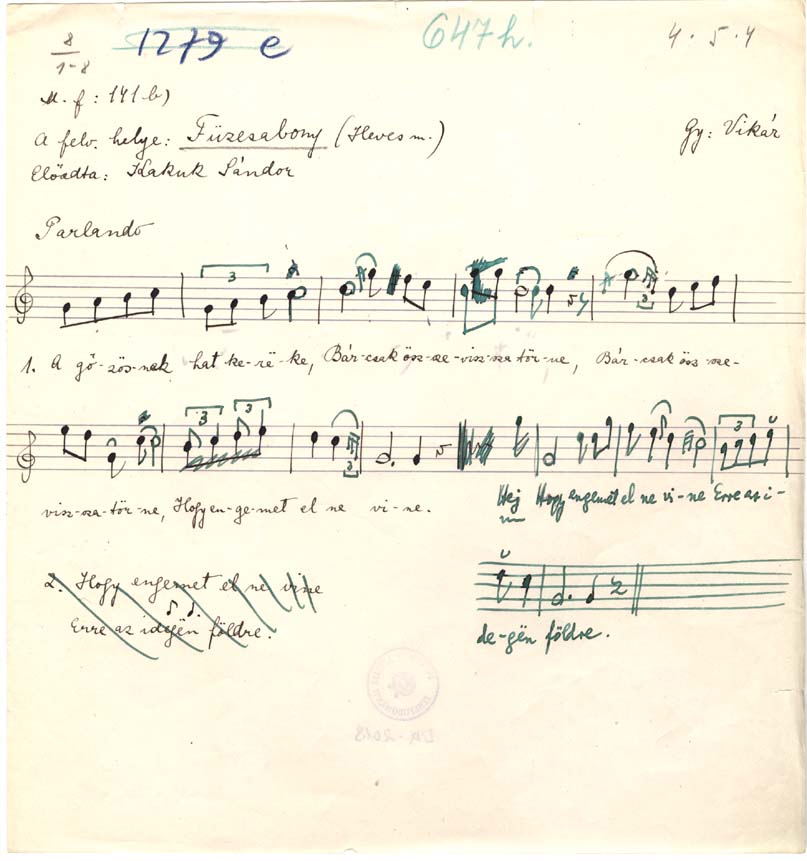 8
1-8
1279 e
647h.
4. 5. 4
M. f: 141 b)
A felv. helye: Füzesabony (Heves m.)
Gy: Vikár
Előadta: Kakuk Sándor
Parlando
3
3
1. A gő-zös-nek hat ke-rë-ke, Bár-csak ösz-sze-visz-sza tör-ne, Bár-csak ösz-sze-
3 3
3
3
visz-sza-tör-ne, Hogy en-ge-met el ne vi-ne.
Hej Hogy engemet el ne vi-ne Erre az i-
2. Hogy engemet el ne vine
Erre az idegën földre.
de-gën földre.